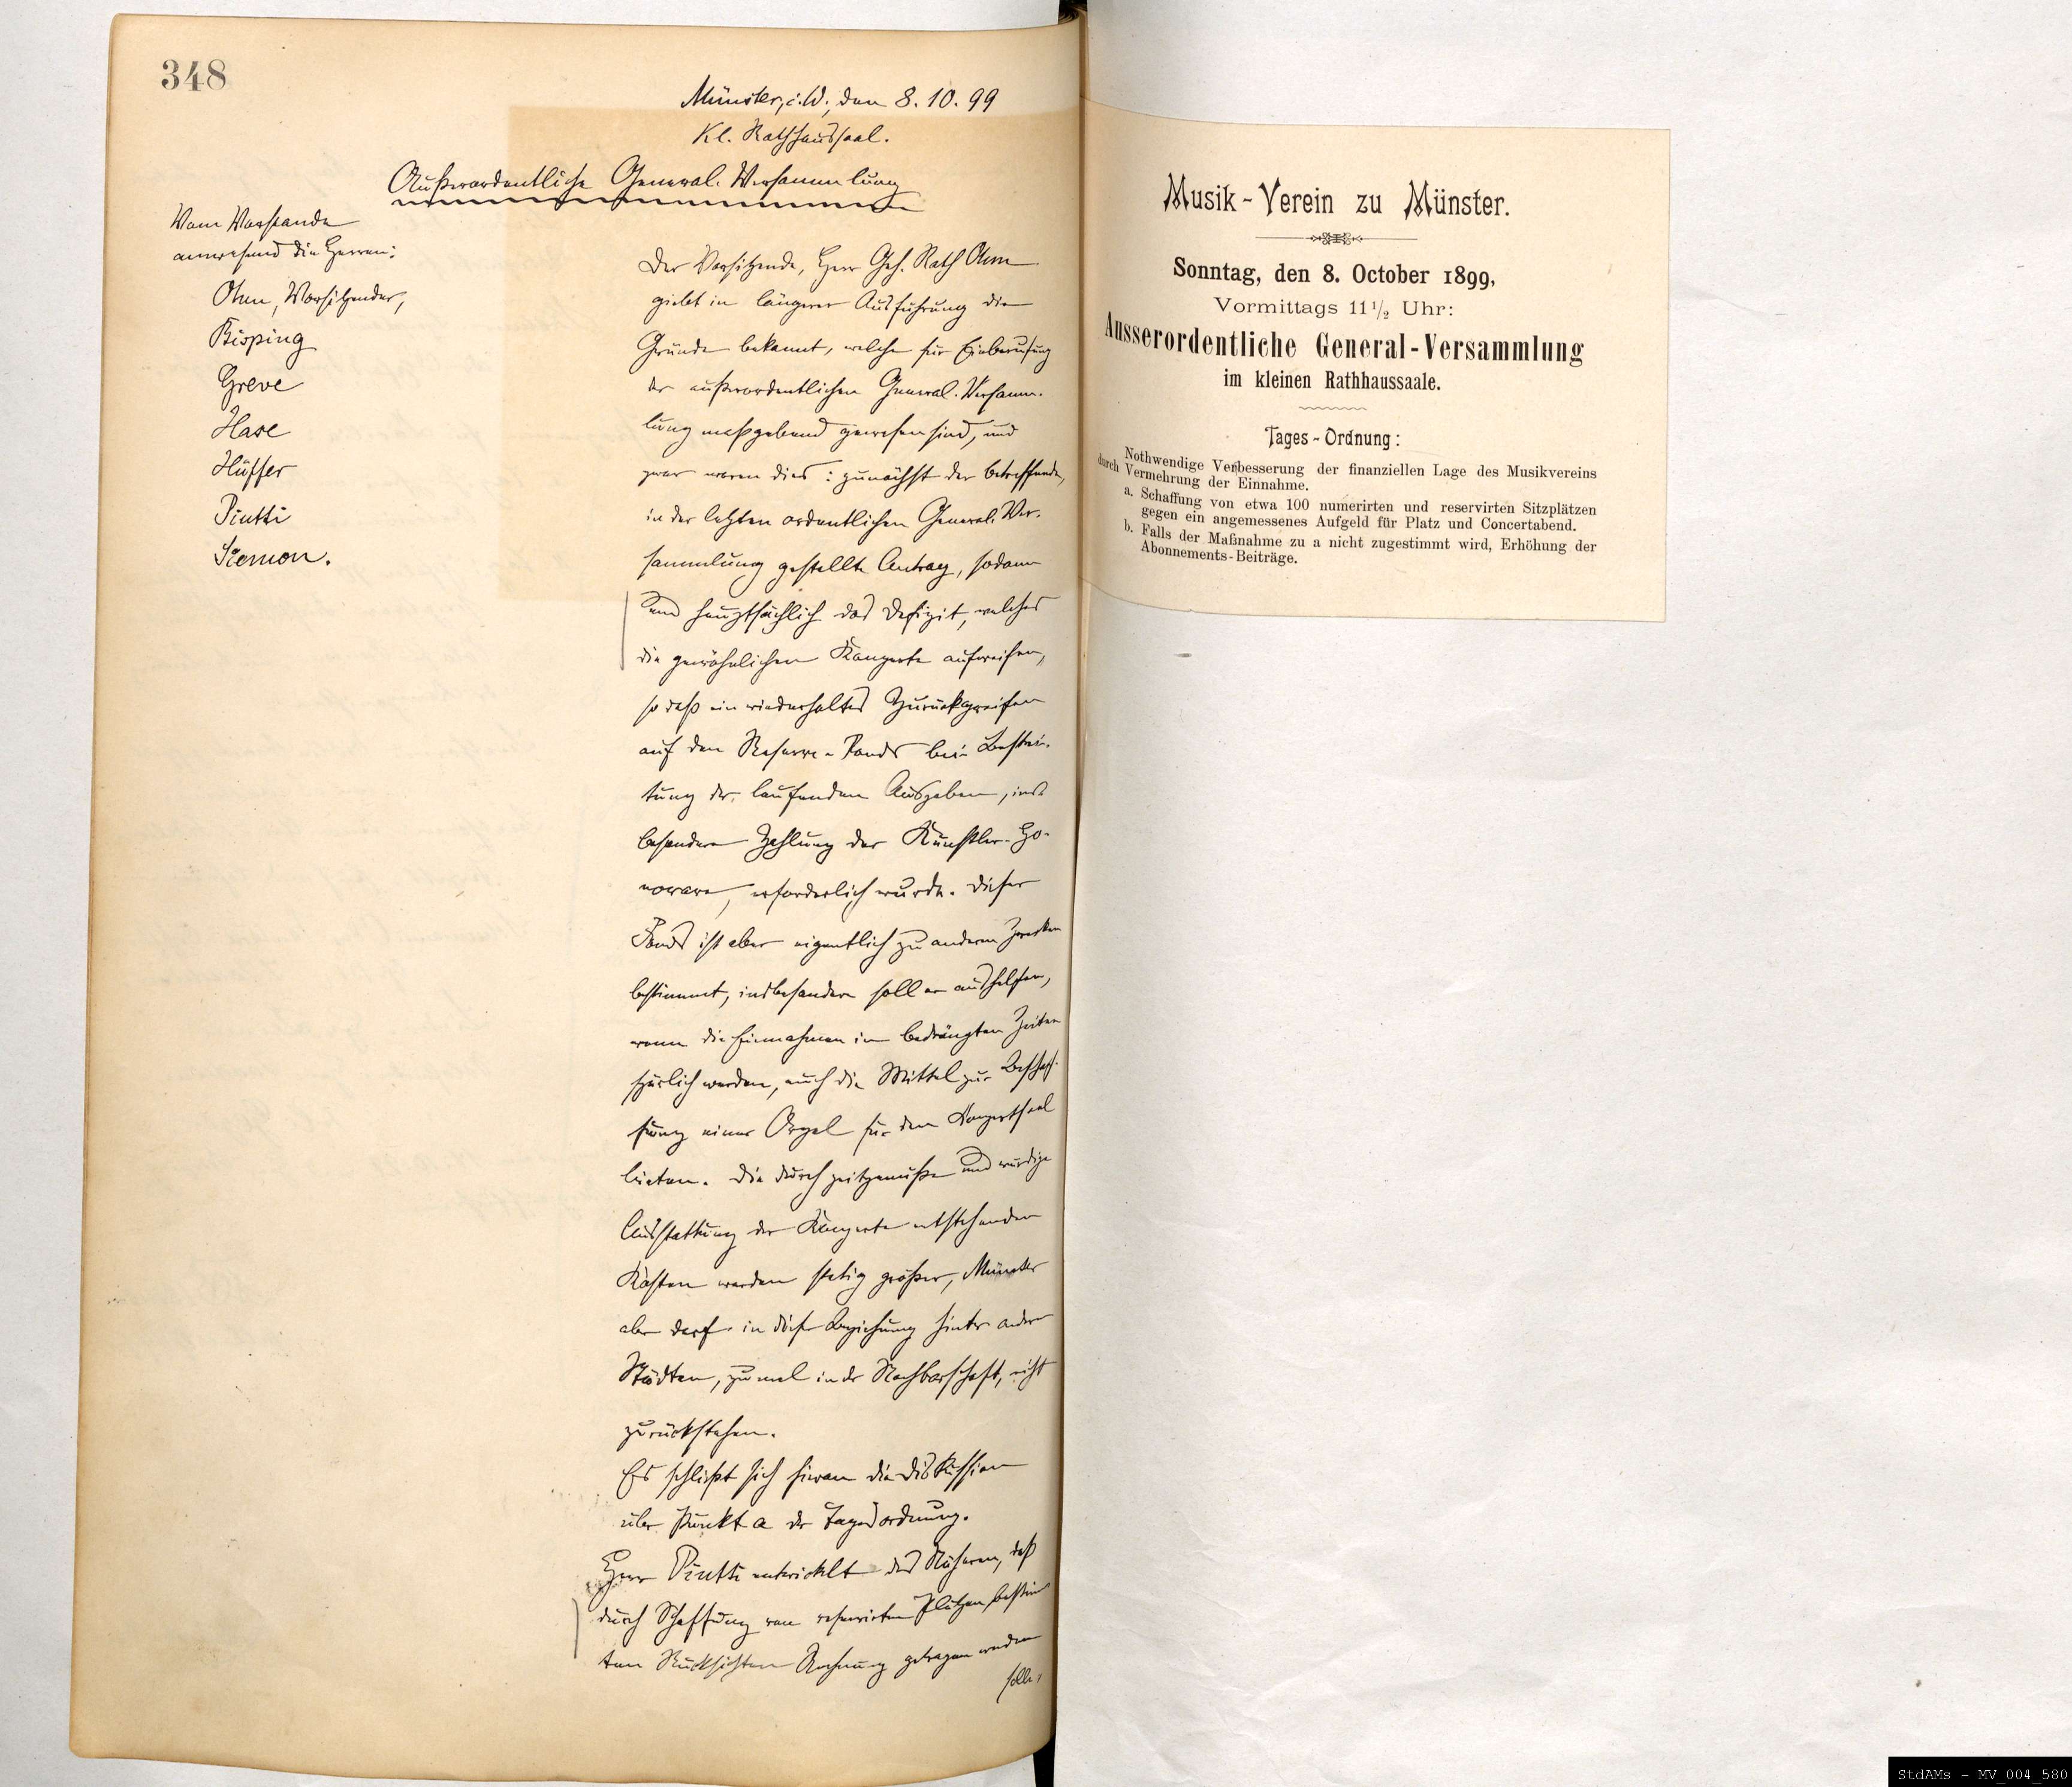 348
Münster, i. W., den 8. 10. 99
Kl. Rathhaussaal.
Außerordentliche General-Versammlung
Vom Vorstande
anwesend die Herren:
Ohm, Vorsitzender,
Bisping
Greve
Hase
Hüffer
Piutti
Siemon.
Der Vorsitzende, Herr Geh. Rath Ohm
giebt in längerer Ausführung die
Gründe bekannt, welche für Einberufung
der außerordentlichen General-Versamm-
lung maßgebend gewesen sind, und
zwar waren dies: zunächst der betreffende,
in der letzten ordentlichen General-Ver-
sammlung gestellte Antrag, sodann
und hauptsächlich das Defizit, welches
die gewöhnlichen Konzerte aufweisen,
so daß ein wiederholtes Zurückgreifen
auf den Reserve-Fonds bei Bestrei-
tung der laufenden Ausgaben, ins-
besondere Zahlung der Künstler-Ho-
norare, erforderlich wurde. Dieser
Fonds ist aber eigentlich zu anderen Zwecken
bestimmt, insbesondere soll er aushelfen,
wenn die Einnahmen in bedrängten Zeiten
spärlich werden, auch die Mittel zur Beschaf-
fung einer Orgel für den Konzertsaal
bieten. Die durch zeitgemäße und würdige
Ausstattung der Konzerte entstehenden
Kosten werden stetig größer, Münster
aber darf in dieser Beziehung hinter andern
Städten, zumal in der Nachbarschaft, nicht
zurückstehen.
Es schließt sich hieran die Diskussion
über Punkt a der Tagesordnung.
Herr Piutti entwickelt des Näheren, daß
durch Schaffung von reservirten Plätzen bestimm
ten Rücksichten Rechnung getragen werden
solle,
Musik-Verein zu Münster.
Sonntag, den 8. October 1899,
Vormittags 11 1/2 Uhr:
Ausserordentliche General-Versammlung
im kleinen Rathhaussaale.
Tages-Ordnung:
Nothwendige Verbesserung der finanziellen Lage des Musikvereins
durch Vermehrung der Einnahme.
a. Schaffung von etwa 100 numerirten und reservirten Sitzplätzen
gegen ein angemessenes Aufgeld für Platz und Concertabend.
b. Falls der Maßnahme zu a nicht zugestimmt wird, Erhöhung der
Abonnements-Beiträge.
StdAMs - MV_004_580